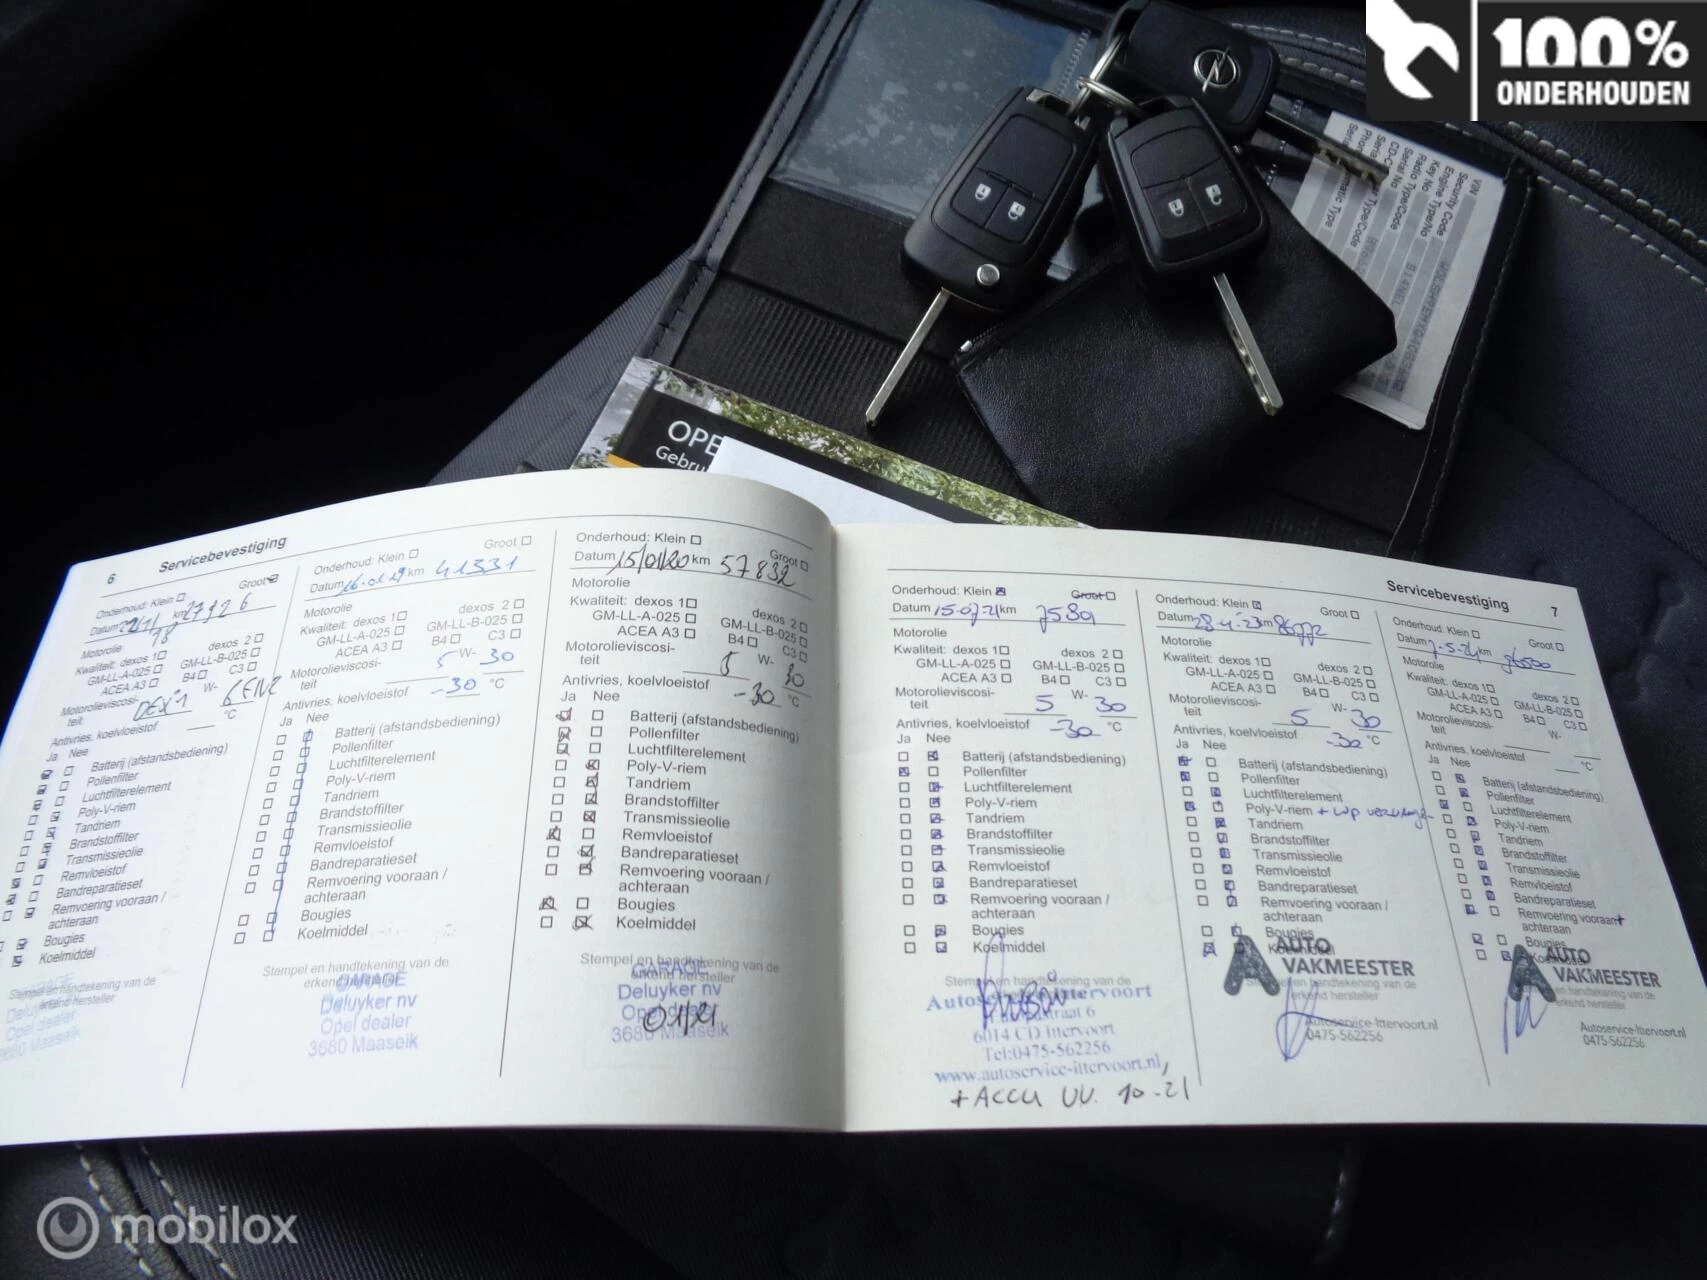 100%
ONDERHOUDEN
VIN
Security Code
Engine Type/No
Key No
Radio Type/Code
Serial No
OPE
Gebru
6
Servicebevestiging
Onderhoud: Klein
Groot
Datum 22/11/18 km 27926
Motorolie
Kwaliteit: dexos 1
dexos 2
GM-LL-A-025
GM-LL-B-025
ACEA A3
B4
C3
Motorolieviscosi-
teit
W-
Antivries, koelvloeistof
°C
Ja Nee
Batterij (afstandsbediening)
Pollenfilter
Luchtfilterelement
Poly-V-riem
Tandriem
Brandstoffilter
Transmissieolie
Remvloeistof
Bandreparatieset
Remvoering vooraan /
achteraan
Bougies
Koelmiddel
Stempel en handtekening van de
erkend hersteller
Onderhoud: Klein
Groot
Datum 16-01-19 km 41331
Motorolie
Kwaliteit: dexos 1
dexos 2
GM-LL-A-025
GM-LL-B-025
ACEA A3
B4
C3
Motorolieviscosi-
teit
5 W- 30
Antivries, koelvloeistof
-30 °C
Ja Nee
Batterij (afstandsbediening)
Pollenfilter
Luchtfilterelement
Poly-V-riem
Tandriem
Brandstoffilter
Transmissieolie
Remvloeistof
Bandreparatieset
Remvoering vooraan /
achteraan
Bougies
Koelmiddel
Stempel en handtekening van de
GARAGE
Deluyker nv
Opel dealer
3680 Maaseik
Onderhoud: Klein
Groot
Datum 15/01/20 km 57832
Motorolie
Kwaliteit: dexos 1
dexos 2
GM-LL-A-025
GM-LL-B-025
ACEA A3
B4
C3
Motorolieviscosi-
teit
5 W- 30
Antivries, koelvloeistof
-30 °C
Ja Nee
Batterij (afstandsbediening)
Pollenfilter
Luchtfilterelement
Poly-V-riem
Tandriem
Brandstoffilter
Transmissieolie
Remvloeistof
Bandreparatieset
Remvoering vooraan /
achteraan
Bougies
Koelmiddel
Stempel en handtekening van de
erkend hersteller
GARAGE
Deluyker nv
Opel dealer
01/21
3680 Maaseik
Servicebevestiging
7
Onderhoud: Klein
Groot
Datum 15-07-21 km
Motorolie
Kwaliteit: dexos 1
dexos 2
GM-LL-A-025
GM-LL-B-025
ACEA A3
B4
C3
Motorolieviscosi-
teit
5 W- 30
Antivries, koelvloeistof
-30 °C
Ja Nee
Batterij (afstandsbediening)
Pollenfilter
Luchtfilterelement
Poly-V-riem
Tandriem
Brandstoffilter
Transmissieolie
Remvloeistof
Bandreparatieset
Remvoering vooraan /
achteraan
Bougies
Koelmiddel
Autoservice Ittervoort
6014 CD Ittervoort
Tel:0475-562256
www.autoservice-ittervoort.nl
+ ACCU VV. 10-21
Onderhoud: Klein
Groot
Datum 28-4-23 km
Motorolie
Kwaliteit: dexos 1
dexos 2
GM-LL-A-025
GM-LL-B-025
ACEA A3
B4
C3
Motorolieviscosi-
teit
5 W- 30
Antivries, koelvloeistof
-30 °C
Ja Nee
Batterij (afstandsbediening)
Pollenfilter
Luchtfilterelement
Poly-V-riem
Tandriem
Brandstoffilter
Transmissieolie
Remvloeistof
Bandreparatieset
Remvoering vooraan /
achteraan
Bougies
Koelmiddel
AUTO
VAKMEESTER
erkend hersteller
Autoservice-Ittervoort.nl
0475-562256
Onderhoud: Klein
Groot
Datum 7-5-24 km 96500
Motorolie
Kwaliteit: dexos 1
dexos 2
GM-LL-A-025
GM-LL-B-025
ACEA A3
B4
C3
Motorolieviscosi-
teit
W-
Antivries, koelvloeistof
°C
Ja Nee
Batterij (afstandsbediening)
Pollenfilter
Luchtfilterelement
Poly-V-riem
Tandriem
Brandstoffilter
Transmissieolie
Remvloeistof
Bandreparatieset
Remvoering vooraan
achteraan
Bougies
Koelmiddel
AUTO
VAKMEESTER
en handtekening van de
erkend hersteller
Autoservice-Ittervoort.nl
0475-562256
mobilox